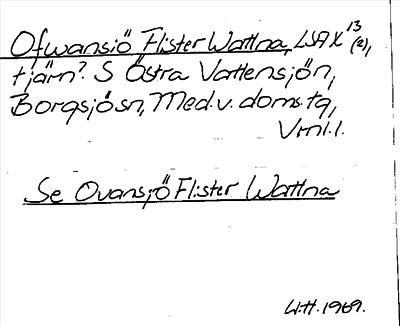 Ofwansiö Flister Wattna, LSA X 13 (2),
tjärn? S Östra Vattensjön,
Borgsjö sn, Med.v. doms. tg,
Vrnl. l.
Se Ovansjö Flister Wattna
W.H. 1969.